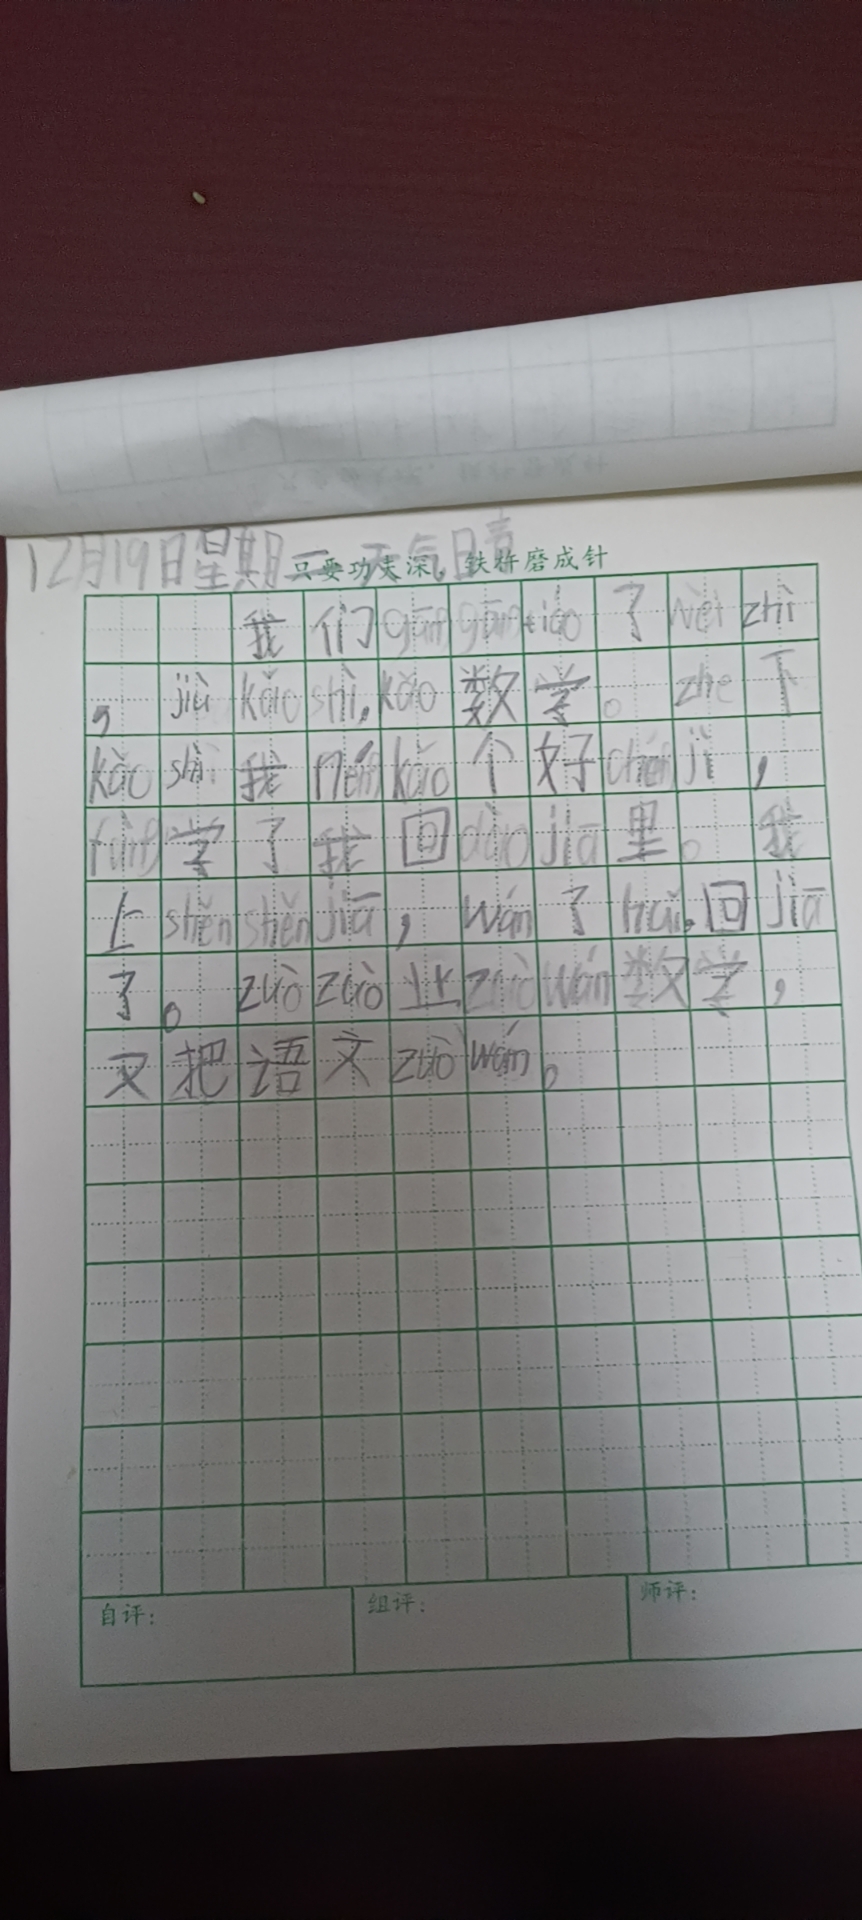 只要功夫深，铁杵磨成针
12月19日星期二 天气日青
我们gāng gāng tiáo了wèi zhì
，jiù kǎo shì，kǎo数学。zhe下
kǎo shì我mén kǎo个好chén jì，
fàng学了我回dào jiā里。我
上shěn shěn jiā，wán了huǐ，回jiā
了。zuò zuò业zuò wán数学，
又把语文zuò wán。
自评： 组评： 师评：